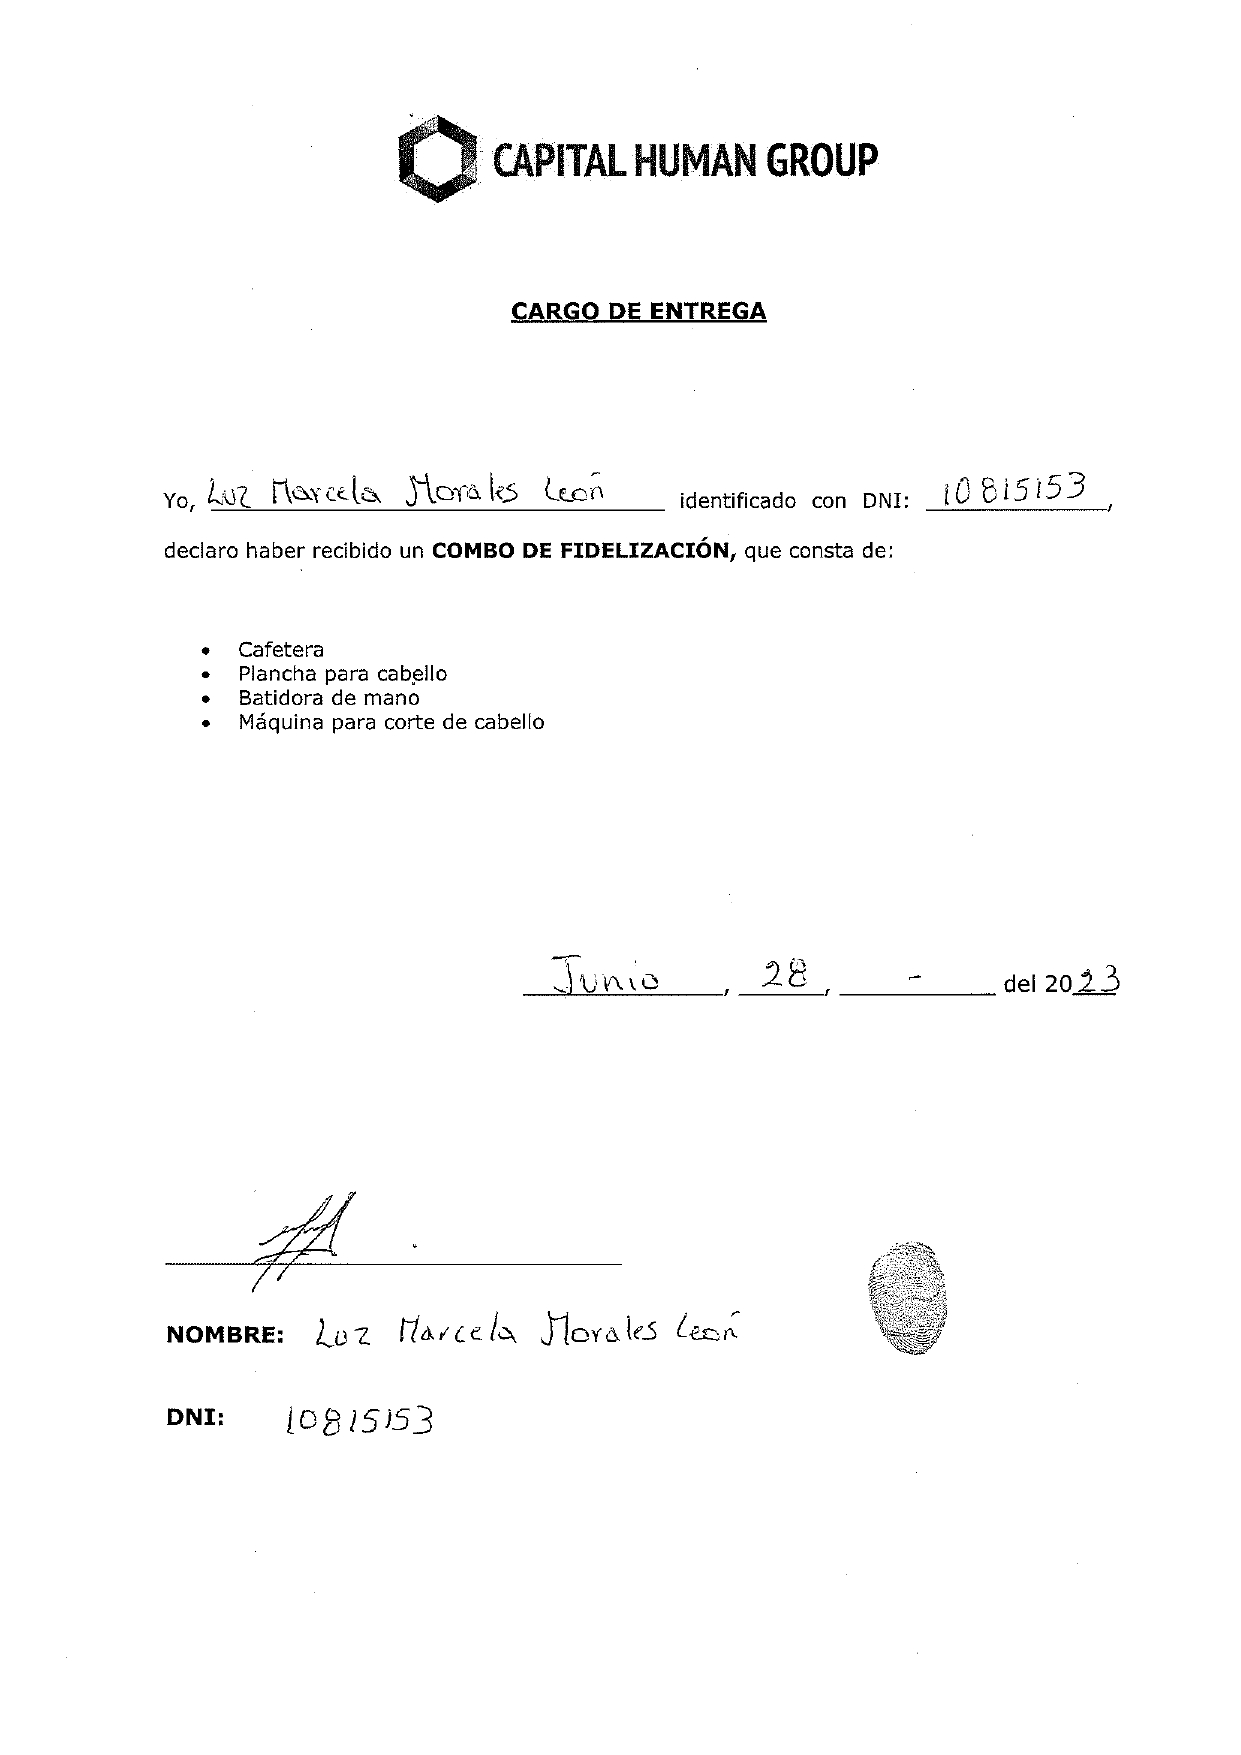 CAPITAL HUMAN GROUP
CARGO DE ENTREGA
Yo, Luz Marcela Morales León identificado con DNI: 10815153,
declaro haber recibido un COMBO DE FIDELIZACIÓN, que consta de:
• Cafetera
• Plancha para cabello
• Batidora de mano
• Máquina para corte de cabello
Junio, 28, - del 2023
NOMBRE: Luz Marcela Morales León
DNI: 10815153